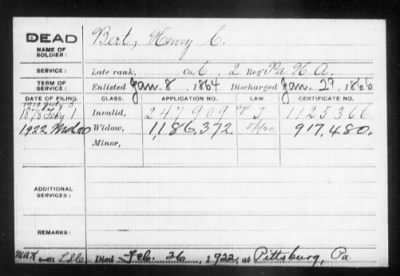 DEAD Bert, Henry C.
NAME OF SOLDIER:
SERVICE: Late rank, Co. C, 2 Reg't Pa. H. A.
Enlisted Jan. 8, 1864 Discharged Jan. 29, 1866
DATE OF FILING. CLASS. APPLICATION NO. LAW CERTIFICATE NO.
1878 Feby Invalid, 247909 1125366
1922 Widow, 1,186,372. 917,480.
Minor,
ADDITIONAL SERVICES:
REMARKS:
Died Feb. 26, 1922, at Pittsburg, Pa.